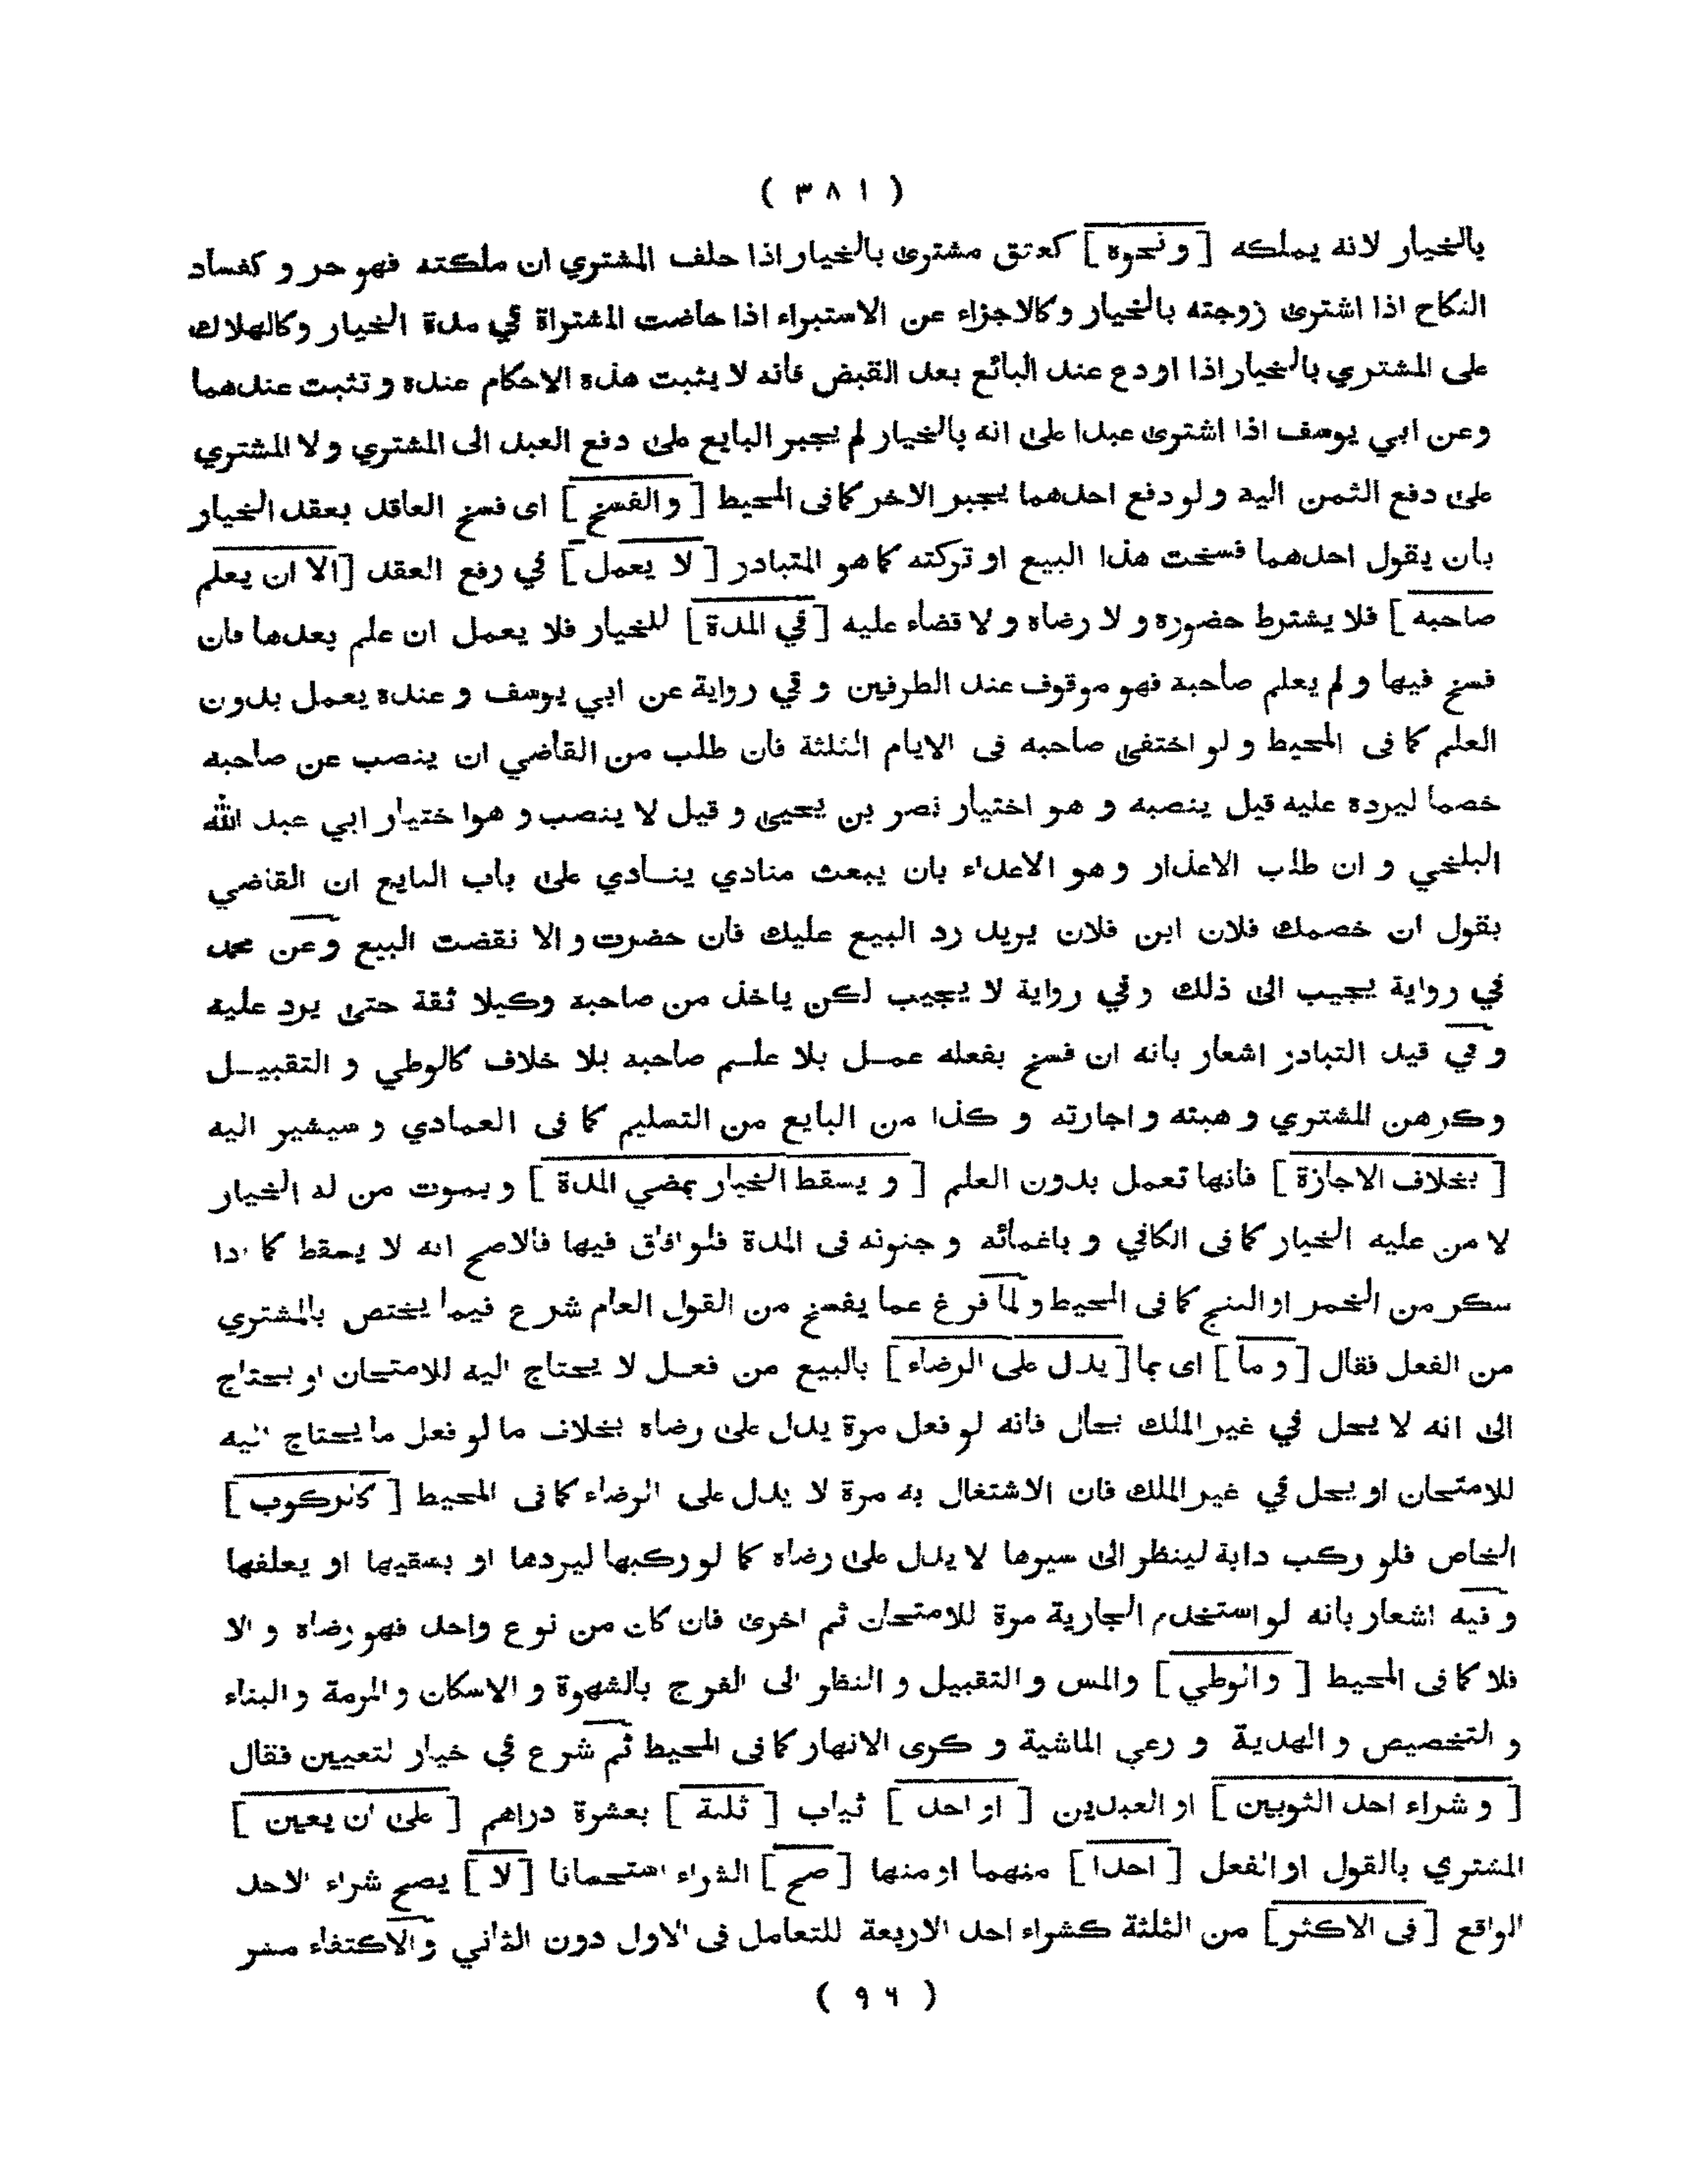 ( ٣٨١ )
بالخيار لانه يملكه [ ونحوه ] كعتق مشترى بالخيار اذا حلف المشتري ان ملكته فهو حر و كفساد
النكاح اذا اشترى زوجته بالخيار وكالاجزاء عن الاستبراء اذا حاضت المشتراة في مدة الخيار وكالهلاك
على المشتري بالخيار اذا اودع عند البائع بعد القبض فانه لا يثبت هذه الاحكام عنده و تثبت عندهما
وعن ابي يوسف اذا اشترى عبدا على انه بالخيار لم يجبر البايع على دفع العبد الى المشتري ولا المشتري
على دفع الثمن اليه ولو دفع احدهما يجبر الاخر كما فى المحيط [ والفسخ ] اى فسخ العاقد بعقد الخيار
بان يقول احدهما فسخت هذا البيع او تركته كما هو المتبادر [ لا يعمل ] في رفع العقد [ الا ان يعلم
صاحبه ] فلا يشترط حضوره و لا رضاه و لا قضاء عليه [ في المدة ] للخيار فلا يعمل ان علم بعدها فان
فسخ فيها و لم يعلم صاحبه فهو موقوف عند الطرفين و في رواية عن ابي يوسف و عنده يعمل بدون
العلم كما فى المحيط و لو اختفى صاحبه فى الايام الثلثة فان طلب من القاضي ان ينصب عن صاحبه
خصما ليرده عليه قيل ينصبه و هو اختيار نصر بن يحيى و قيل لا ينصب و هو اختيار ابي عبد الله
البلخي و ان طلب الاعذار و هو الاعداء بان يبعث منادي ينادي على باب البايع ان القاضي
بقول ان خصمك فلان ابن فلان يريد رد البيع عليك فان حضرت و الا نقضت البيع وعن محمد
في رواية يجيب الى ذلك وفي رواية لا يجيب لكن ياخذ من صاحبه وكيلا ثقة حتى يرد عليه
و في قيد التبادر اشعار بانه ان فسخ بفعله عمل بلا علم صاحبه بلا خلاف كالوطي و التقبيل
وكرهن المشتري و هبته و اجارته و كذا من البايع من التسليم كما فى العمادي و سيشير اليه
[ بخلاف الاجازة ] فانها تعمل بدون العلم [ و يسقط الخيار بمضي المدة ] و بموت من له الخيار
لا من عليه الخيار كما فى الكافي و باغمائه و جنونه فى المدة فلو افاق فيها فالاصح انه لا يسقط كما اذا
سكر من الخمر او البنج كما فى المحيط و لما فرغ عما يفسخ من القول العام شرع فيما يختص بالمشتري
من الفعل فقال [ و ما ] اى بما [ يدل على الرضاء ] بالبيع من فعل لا يحتاج اليه للامتحان او يحتاج
الى انه لا يحل في غير الملك بحال فانه لو فعل مرة يدل على رضاه بخلاف ما لو فعل ما يحتاج اليه
للامتحان او يحل في غير الملك فان الاشتغال به مرة لا يدل على الرضاء كما فى المحيط [ كالركوب ]
الخاص فلو ركب دابة لينظر الى سيرها لا يدل على رضاه كما لو ركبها ليردها او يسقيها او يعلفها
و فيه اشعار بانه لو استخدم الجارية مرة للامتحان ثم اخرى فان كان من نوع واحد فهو رضاه و الا
فلا كما فى المحيط [ والوطي ] والمس و التقبيل و النظر الى الفرج بالشهوة و الاسكان و المرمة و البناء
و التخصيص و الهدية و رعي الماشية و كرى الانهار كما فى المحيط ثم شرع في خيار لتعيين فقال
[ و شراء احد الثوبين ] او العبدين [ او احد ] ثياب [ ثلثة ] بعشرة دراهم [ على ان يعين ]
المشتري بالقول او الفعل [ احدا ] منهما او منها [ صح ] الشراء استحسانا [ لا ] يصح شراء الاحد
الواقع [ فى الاكثر ] من الثلثة كشراء احد الاربعة للتعامل فى الاول دون الثاني والاكتفاء
( ٩٦ )